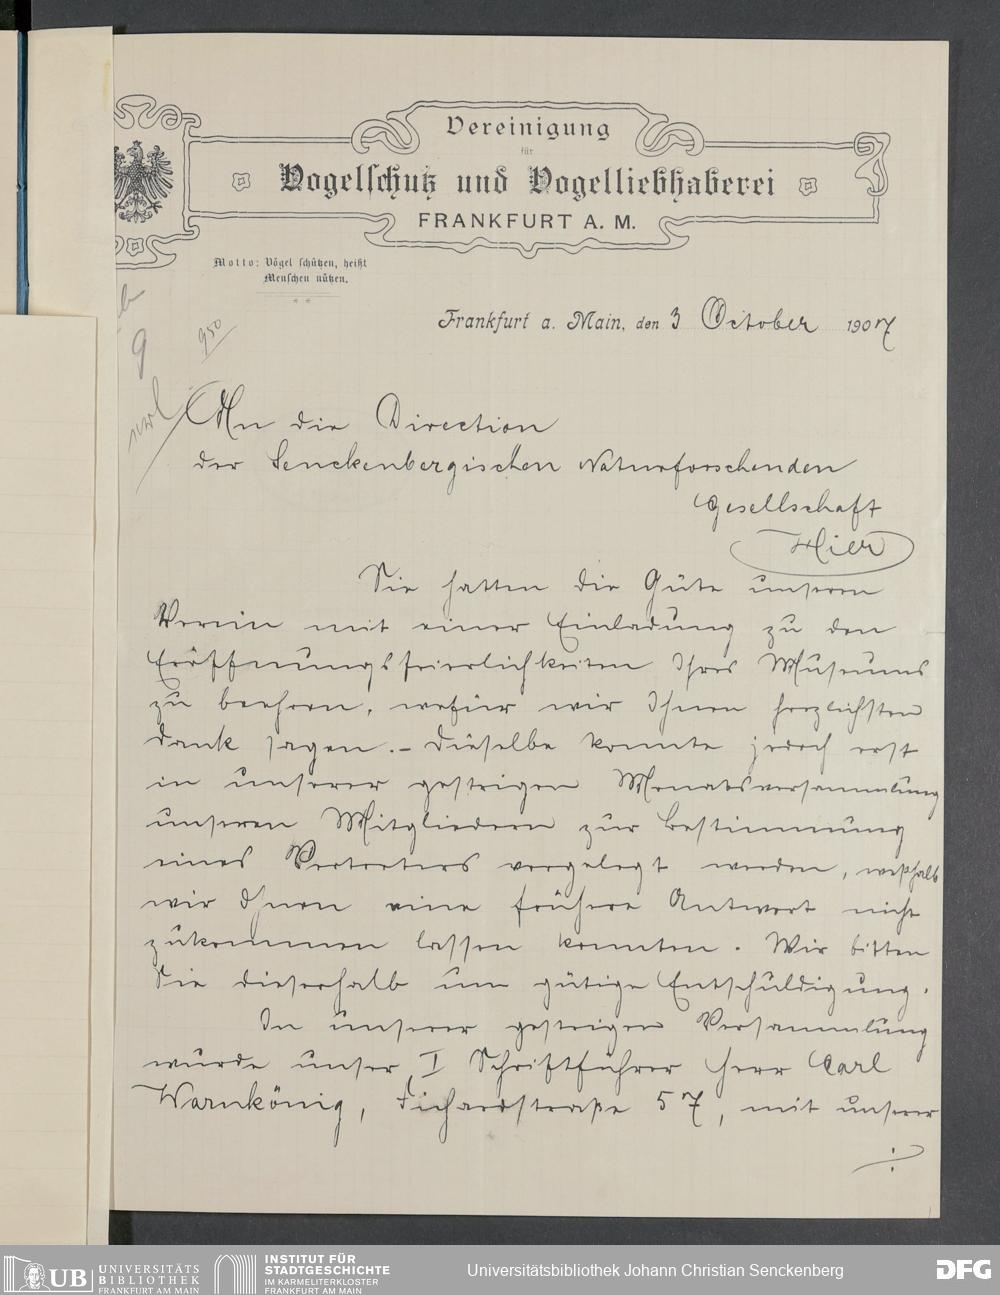 Vereinigung
für
Vogelschutz und Vogelliebhaberei
FRANKFURT A. M.
Motto: Vögel schützen, heißt
Menschen nützen.
Frankfurt a. Main, den 3 October 1907
950
9
An die Direction
der Senckenbergischen Naturforschenden
Gesellschaft
Hier
Sie hatten die Güte unseren
Verein mit einer Einladung zu den
Eröffnungsfeierlichkeiten Ihres Museums
zu beehren, wofür wir Ihnen herzlichsten
Dank sagen. – Dieselbe konnte jedoch erst
in unserer gestrigen Monatsversammlung
unseren Mitgliedern zur Bestimmung
eines Vertreters vorgelegt werden, weßhalb
wir Ihnen eine frühere Antwort nicht
zukommen lassen konnten. Wir bitten
Sie dieserhalb um gütige Entschuldigung.
In unserer gestrigen Versammlung
wurde unser I Schriftführer Herr Carl
Warnkönig, Fichardstraße 57, mit unserer
./.
UB UNIVERSITÄTS
BIBLIOTHEK
FRANKFURT AM MAIN
INSTITUT FÜR
STADTGESCHICHTE
IM KARMELITERKLOSTER
FRANKFURT AM MAIN
Universitätsbibliothek Johann Christian Senckenberg
DFG